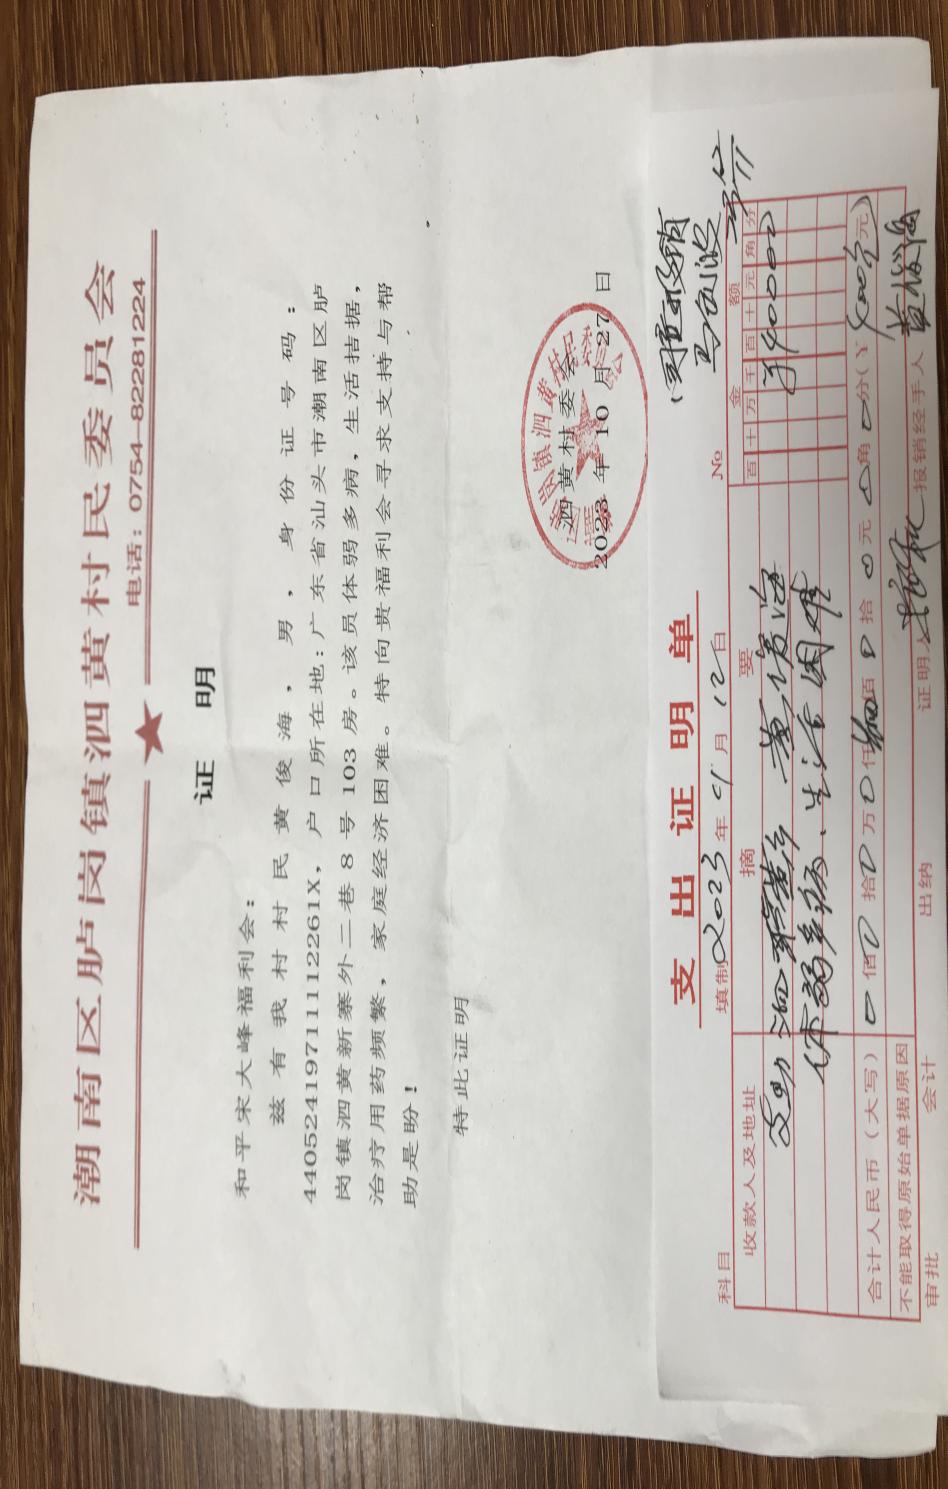 潮南区胪岗镇泗黄村民委员会
电话：0754-82281224
证 明
和平宋大峰福利会：
兹有我村村民黄俊海，男，身份证号码：
44052419711112261X，户口所在地：广东省汕头市潮南区胪
岗镇泗黄新寨外二巷8号103房。该员体弱多病，生活拮据，
治疗用药频繁，家庭经济困难。特向贵福利会寻求支持与帮
助是盼！
特此证明
泗黄村委会
2023年10月27日
支出证明单
科目
填制2023年9月12日
No
收款人及地址
摘要
金额
百十万千百十元角分
泗黄乡黄俊海
¥40000
体弱多病、生活困难
合计人民币（大写）0佰0拾0万0仟肆百0拾0元0角0分（¥400元）
不能取得原始单据原因
审批
会计
出纳
证明人
报销经手人 黄俊海